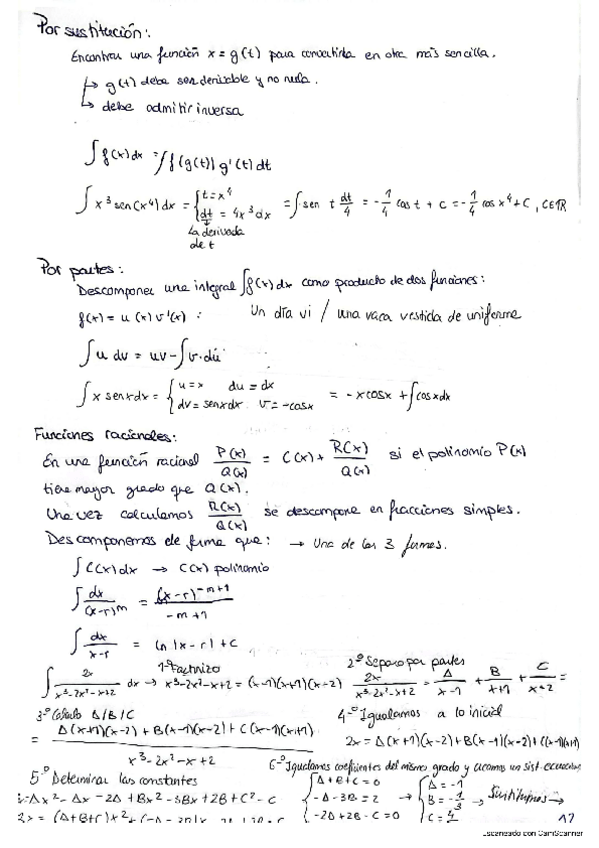 Por sustitución:
Encontrar una función x = g(t) para convertirla en otra más sencilla.
↳ g(t) debe ser derivable y no nula.
↳ debe admitir inversa
∫f(x)dx = ∫f(g(t)) g'(t) dt
∫x³sen(x⁴)dx = {t=x⁴ dt = 4x³dx = ∫sen t dt/4 = -1/4 cos t + c = -1/4 cos x⁴ + C, C∈ℝ
La derivada
de t
Por partes:
Descomponer una integral ∫f(x)dx como producto de dos funciones:
f(x) = u(x) v'(x) : Un día vi / una vaca vestida de uniforme
∫u dv = uv - ∫v·du
∫x senx dx = {u=x du = dx dv = senxdx v = -cosx = -xcosx + ∫cosxdx
Funciones racionales:
En una función racional P(x)/Q(x) = C(x) + R(x)/Q(x) si el polinomio P(x)
tiene mayor grado que Q(x).
Una vez calculamos R(x)/Q(x) se descompone en fracciones simples.
Descomponemos de forma que: → Una de las 3 formas.
∫C(x)dx → C(x) polinomio
∫dx/(x-r)^m = (x-r)^(-m+1)/(-m+1)
∫dx/(x-r) = ln|x-r| + C
1º Factorizo 2º Separo por partes
∫2x/(x³-2x²-x+2) dx → x³-2x²-x+2 = (x-1)(x+1)(x-2) 2x/(x³-2x²-x+2) = A/(x-1) + B/(x+1) + C/(x-2) =
3º Calculo A/B/C 4º Igualamos a lo inicial
= A(x+1)(x-2) + B(x-1)(x-2) + C(x-1)(x+1) / x³-2x²-x+2 2x = A(x+1)(x-2)+B(x-1)(x-2)+C(x-1)(x+1)
5º Determinar las constantes 6º Igualamos coeficientes del mismo grado y creamos un sist. ecuaciones
Ax² - Ax - 2A + Bx² - 3Bx + 2B + C² - C {A+B+C=0 -A-3B=2 -2A+2B-C=0 → {A=-1 B=-1/3 C=4/3 → Sustituimos →
2x = (A+B+C)x² + 17
Escaneado con CamScanner